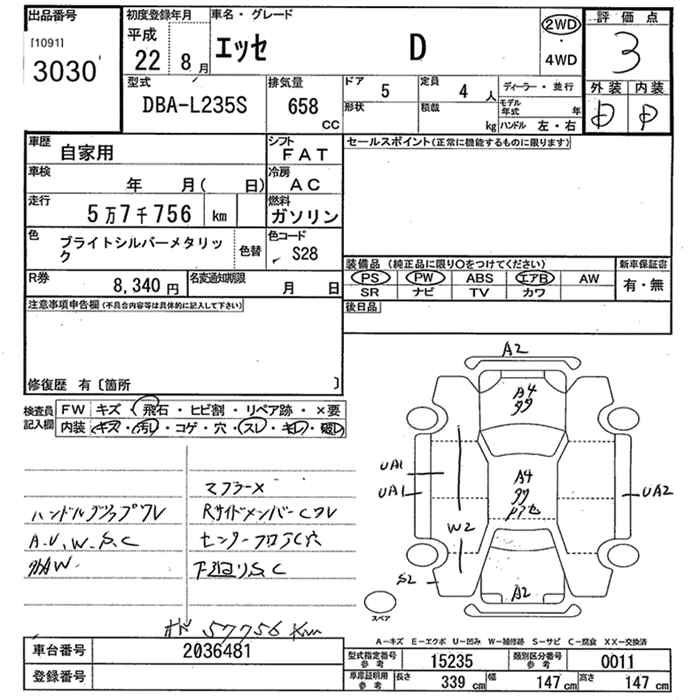 出品番号
[1091]
3030
初度登録年月
平成
22 8月
車名・グレード
エッセ D
2WD
・
4WD
評価点
3
外装 内装
D D
型式
DBA-L235S
排気量
658
cc
ドア 5
定員 4 人
形状
積載 kg
ディーラー・並行
モデル年式 年
ハンドル 左・右
車歴
自家用
シフト
FAT
車検
年 月( 日)
冷房
AC
走行
5万7千756 km
燃料
ガソリン
色
ブライトシルバーメタリック
色替
色コード
S28
R券
8,340 円
名変通知期限
月 日
セールスポイント(正常に機能するものに限ります)
装備品 (純正品に限り○をつけてください)
PS PW ABS エアB AW
SR ナビ TV カワ
新車保証書
有・無
後日品
注意事項申告欄 (不具合内容等は具体的に記入して下さい)
修復歴 有〔箇所 〕
検査員
記入欄
FW キズ・飛石・ヒビ割・リペア跡・×要
内装 キズ・汚レ・コゲ・穴・スレ・キレ・破レ
マフラーメ
ハンドルグリップワレ Rサイドメンバーしワレ
A.U.W.S.C センターフロアC穴
下廻りS.C
オド 57756 Km
A2
A4
A4
UA1
UA1
UA2
W2
S2
A2
スペア
A-キズ E-エクボ U-凹み W-補修跡 S-サビ C-腐食 XX-交換済
車台番号
2036481
登録番号
型式指定番号
参考
15235
類別区分番号
参考
0011
車庫証明用
参考
長さ 339 cm
幅 147 cm
高さ 147 cm